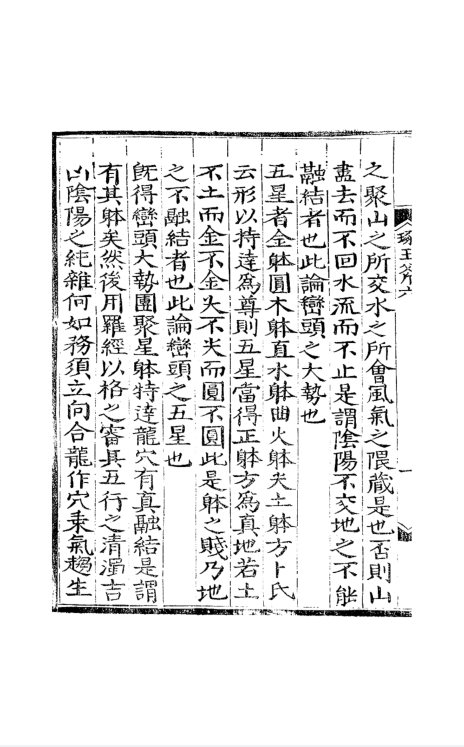 之聚山之所交水之所會風氣之隈藏是也否則山
盡去而不回水流而不止是謂陰陽不交地之不能
融結者也此論巒頭之大勢也
五星者金躰圓木躰直水躰曲火躰尖土躰方卜氏
云形以持達為尊則五星當得正躰方為真地若土
不土而金不金尖不尖而圓不圓此是躰之賤乃地
之不融結者也此論巒頭之五星也
旣得巒頭大勢團聚星躰特達龍穴有真融結是謂
有其躰矣然後用羅經以格之審其五行之清濁吉
凶陰陽之純雜何如務須立向合龍作穴乗氣趨生